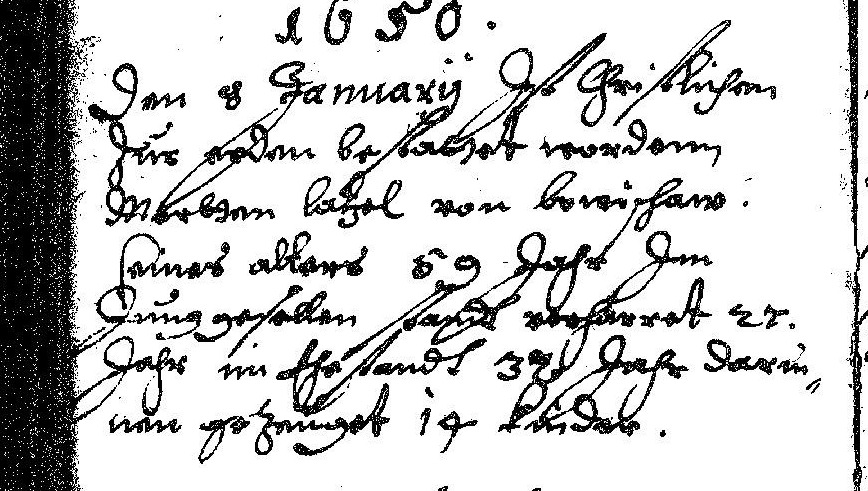 1650.
Den 8 Januarÿ Ist Christlichen
Zur erden bestattet wordenn
Merten latzel von
seines alters 59 Jahr Im
Junggesellen standt verharret 22.
Jahr im Ehestandt 37 Jahr darin
nen gezeuget 14 kinder.